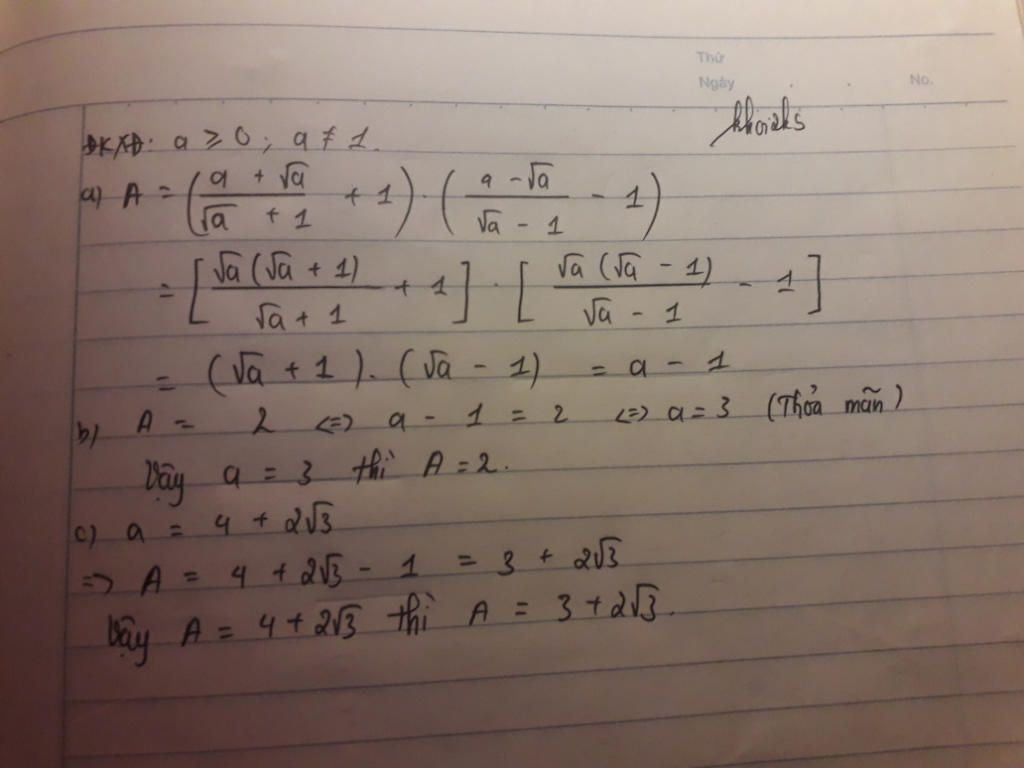 Thứ
Ngày No.
khoiaks
ĐKXĐ: a ≥ 0; a ≠ 1.
a) A = ((a + √a)/(√a + 1) + 1) · ((a - √a)/(√a - 1) - 1)
= [(√a(√a + 1))/(√a + 1) + 1] · [(√a(√a - 1))/(√a - 1) - 1]
= (√a + 1). (√a - 1) = a - 1
b) A = 2 <=> a - 1 = 2 <=> a = 3 (Thỏa mãn)
Vậy a = 3 thì A = 2.
c) a = 4 + 2√3
=> A = 4 + 2√3 - 1 = 3 + 2√3
Vậy A = 4 + 2√3 thì A = 3 + 2√3.